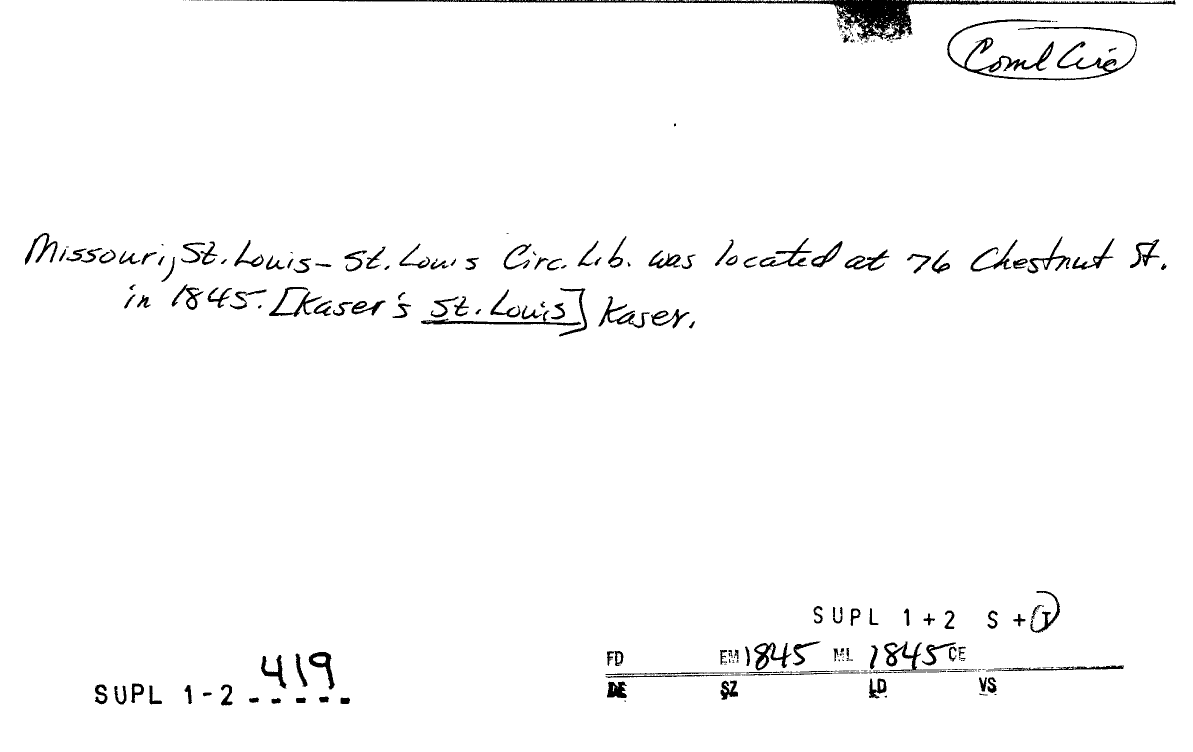 Coml Circ
Missouri, St. Louis - St. Louis Circ. Lib. was located at 76 Chestnut St.
in 1845. [Kaser's St. Louis] Kaser.
SUPL 1+2 S + I
419
SUPL 1-2 - - - - -
FD EM 1845 ML 1845 CE
DE SZ LD VS